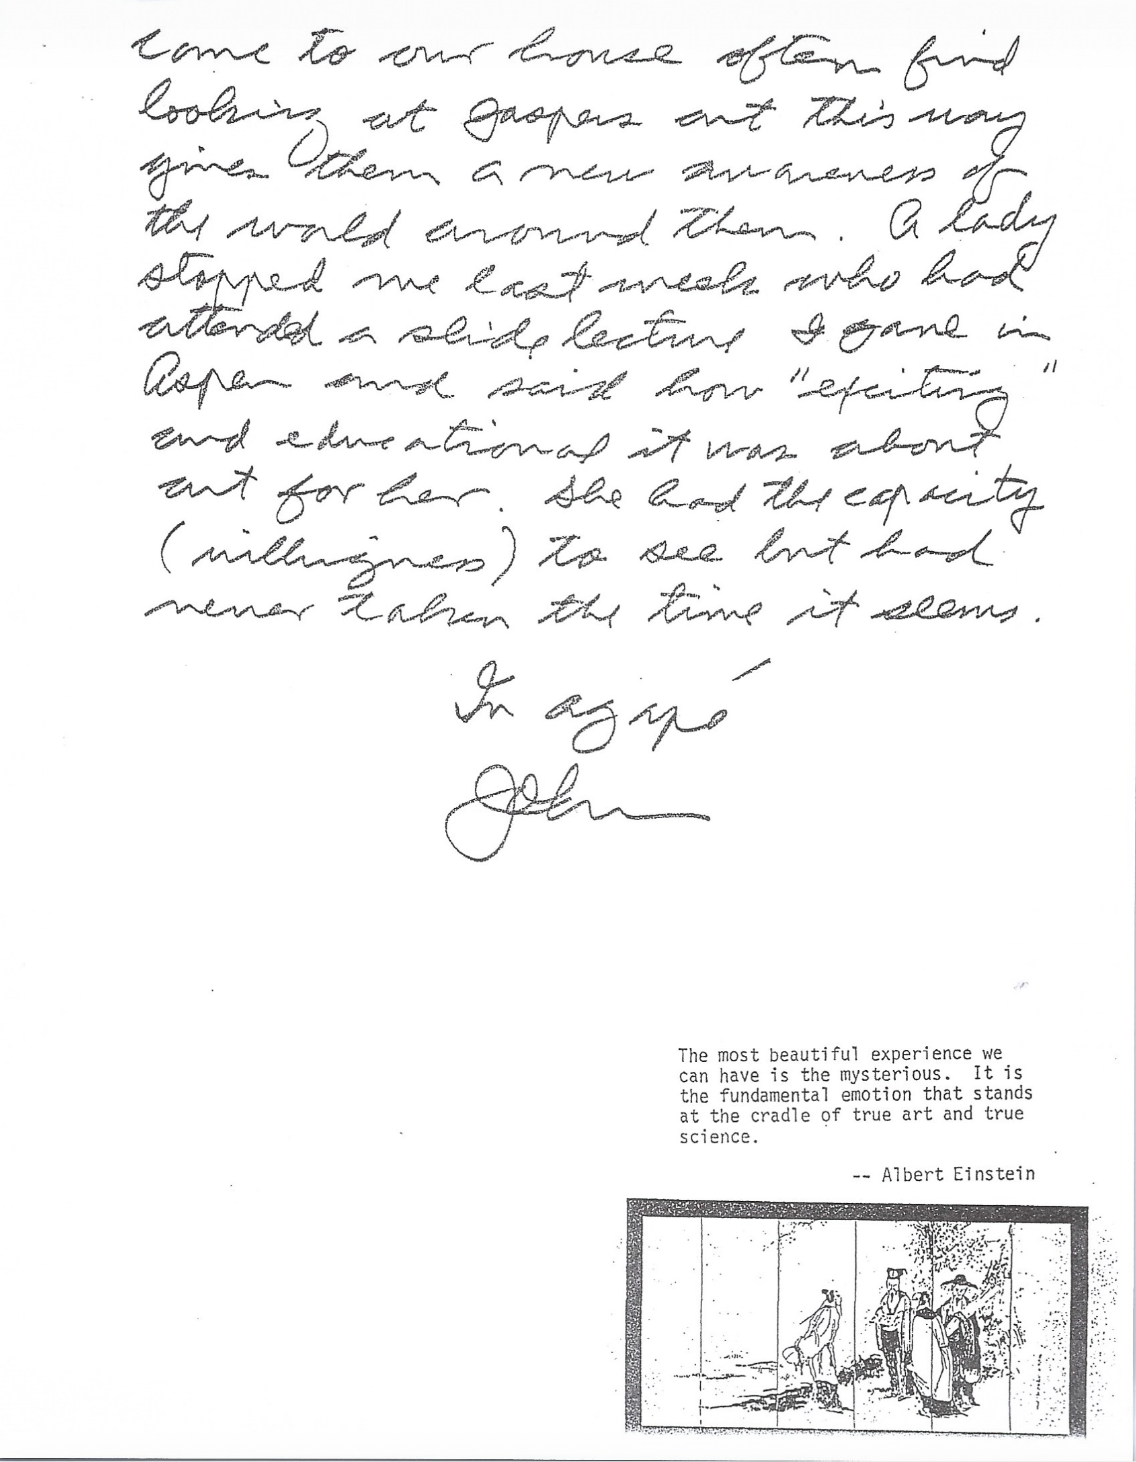 come to our house often find
looking at Jaspers art this way
gives them a new awareness of
the world around them. A lady
stopped me last week who had
attended a slide lecture I gave in
Aspen and said how "exciting"
and educational it was about
art for her. She had the capacity
(willingness) to see but had
never taken the time it seems.
In agapé
John
The most beautiful experience we
can have is the mysterious. It is
the fundamental emotion that stands
at the cradle of true art and true
science.
-- Albert Einstein